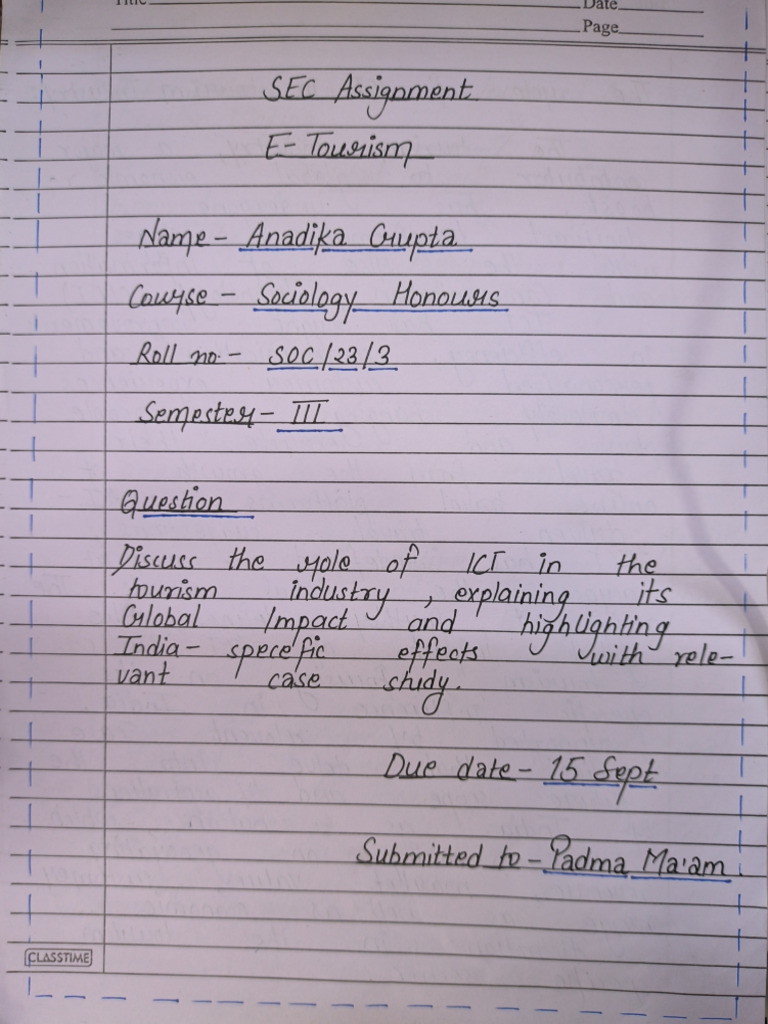 Title
Date
Page
SEC Assignment
E-Tourism
Name - Anadika Gupta
Course - Sociology Honours
Roll no. - SOC/23/3
Semester - III
Question
Discuss the role of ICT in the
tourism industry, explaining its
Global Impact and highlighting
India- specefic effects with rele-
vant case study.
Due date - 15 Sept
Submitted to - Padma Ma'am.
CLASSTIME